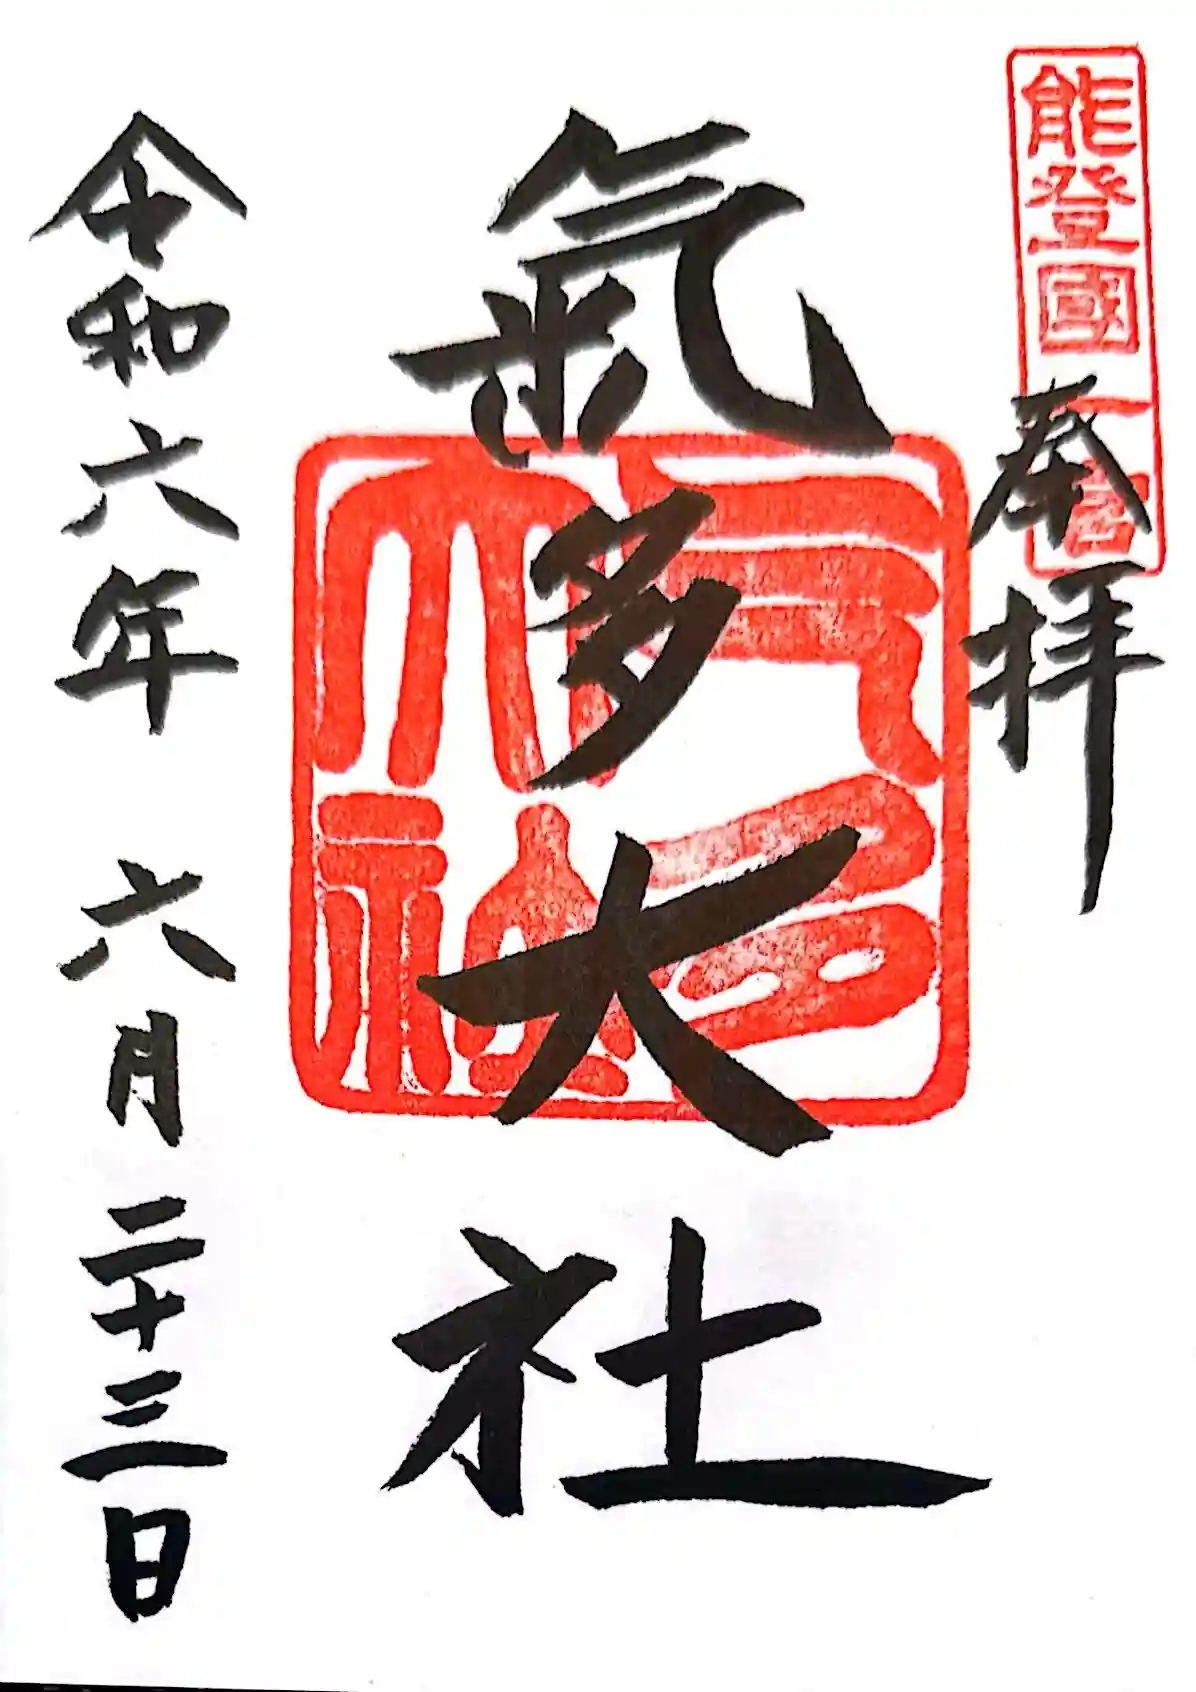 能登國一宮
奉拝
氣多大社
氣多大社
令和六年 六月二十三日